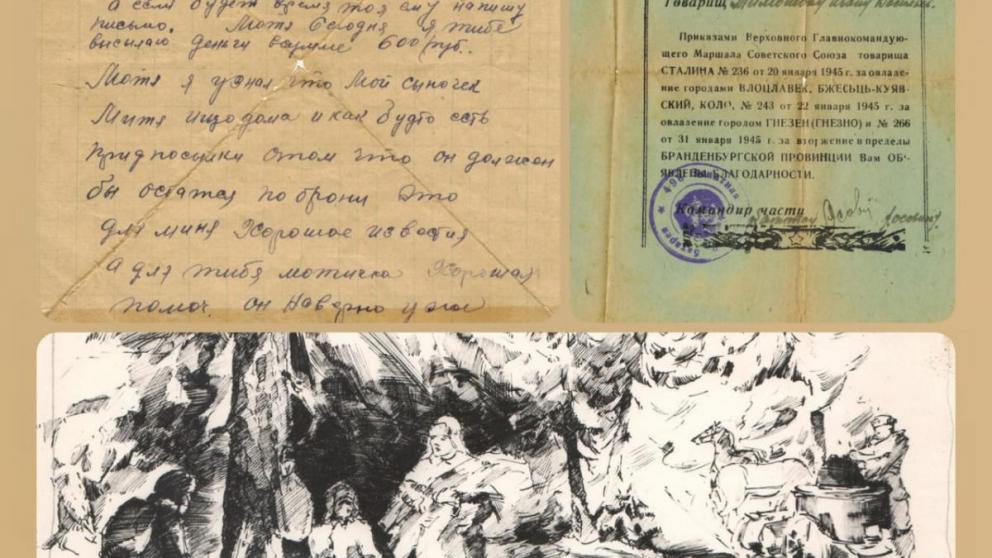 А если будет время то я ему напишу
письмо. Мотя Сегодня я тибе
высылаю деньги в сумме 600 руб.
Мотя я узнал что Мой сыночек
Митя ищо дома и как будто есть
придпосылки о том что он должон
бы остатся по брони Это
для миня Хорошое известия
а для тибя мотичка Хорошая
помоч. он наверно уже
Товарищ
Приказами Верховного Главнокомандую-
щего Маршала Советского Союза товарища
СТАЛИНА № 236 от 20 января 1945 г. за овладе-
ние городами ВЛОЦЛАВЕК, БЖЕСЬЦЬ-КУЯВ-
СКИЙ, КОЛО, № 243 от 22 января 1945 г. за
овладение городом ГНЕЗЕН (ГНЕЗНО) и № 266
от 31 января 1945 г. за вторжение в пределы
БРАНДЕНБУРГСКОЙ ПРОВИНЦИИ Вам ОБ'-
ЯВЛЕНЫ БЛАГОДАРНОСТИ.
Командир части